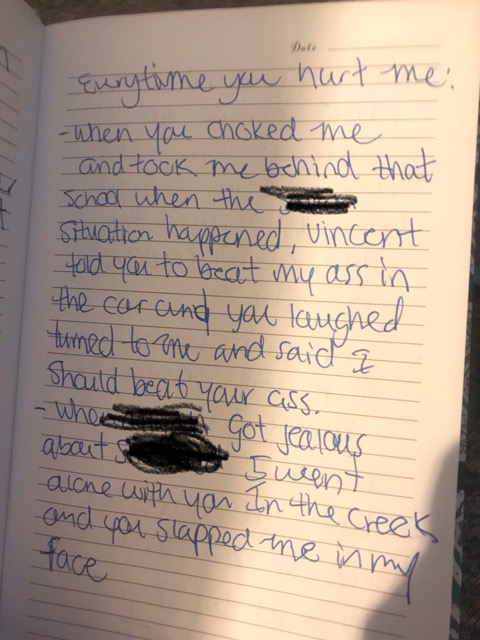 Date
Everytime you hurt me:
- when you choked me
and took me behind that
school when the
situation happened, vincent
told you to beat my ass in
the car and you laughed
turned to me and said I
should beat your ass.
- whe got jealous
about I went
alone with you In the creek
and you slapped me in my
face